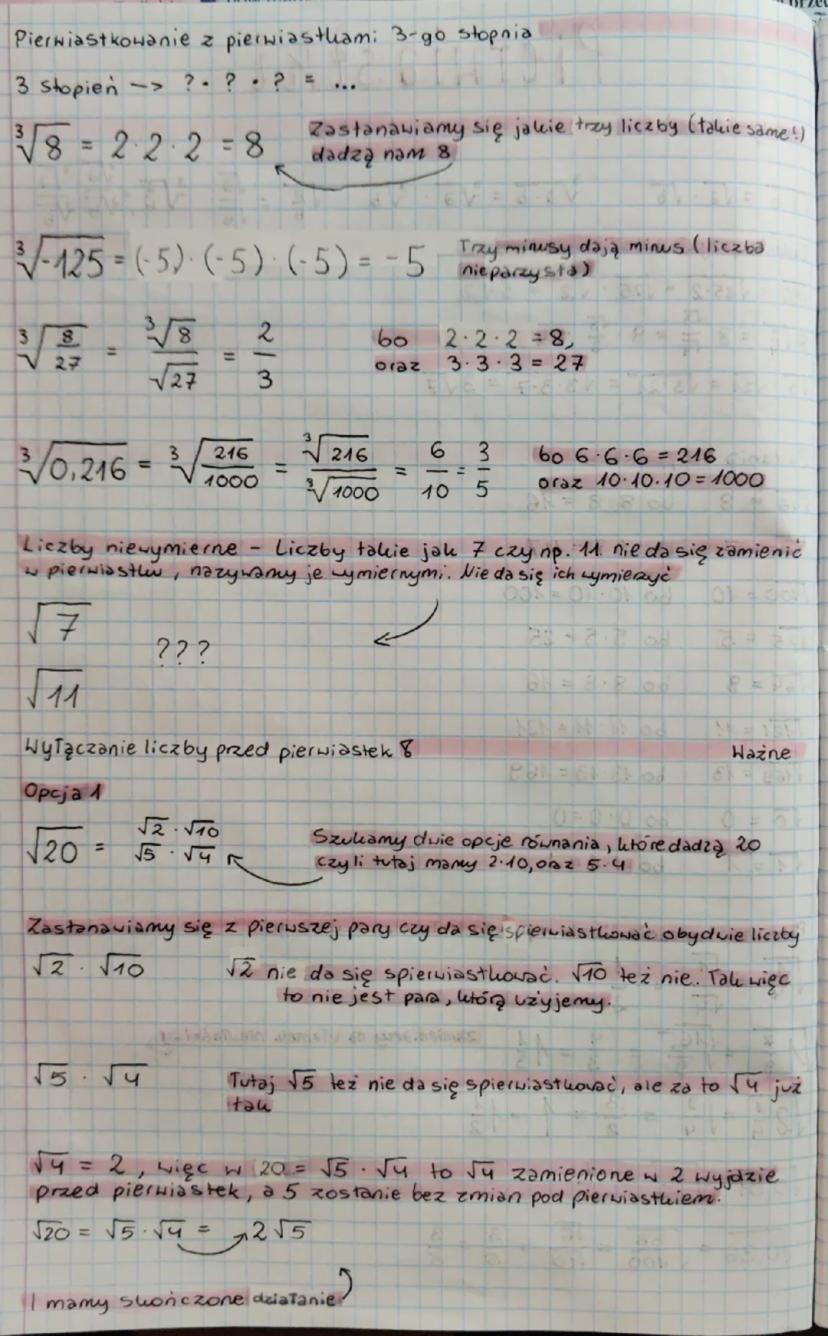 Pierwiastkowanie z pierwiastkami 3-go stopnia
3 stopień –> ? · ? · ? = ...
∛8 = 2 · 2 · 2 = 8 Zastanawiamy się jakie trzy liczby (takie same!)
dadzą nam 8
∛-125 = (-5) · (-5) · (-5) = -5 Trzy minusy dają minus (liczba
nieparzysta)
∛(8/27) = ∛8/√27 = 2/3 bo 2 · 2 · 2 = 8,
oraz 3 · 3 · 3 = 27
∛0,216 = ∛(216/1000) = ∛216/∛1000 = 6/10 = 3/5 bo 6 · 6 · 6 = 216
oraz 10 · 10 · 10 = 1000
Liczby niewymierne – Liczby takie jak 7 czy np. 11 nie da się zamienić
w pierwiastku, nazywamy je wymiernymi. Nie da się ich wymierzyć
√7
???
√11
Wyłączanie liczby przed pierwiastek 8 Ważne
Opcja 1
√20 = √2 · √10
√5 · √4
Szukamy dwie opcje równania, które dadzą 20
czyli tutaj mamy 2·10, oraz 5·4
Zastanawiamy się z pierwszej pary czy da się spierwiastkować obydwie liczby
√2 · √10 √2 nie da się spierwiastkować. √10 też nie. Tak więc
to nie jest para, którą użyjemy.
√5 · √4 Tutaj √5 też nie da się spierwiastkować, ale za to √4 już
tak
√4 = 2, więc w 20 = √5 · √4 to √4 zamienione w 2 wyjdzie
przed pierwiastek, a 5 zostanie bez zmian pod pierwiastkiem.
√20 = √5 · √4 = 2√5
I mamy skończone działanie